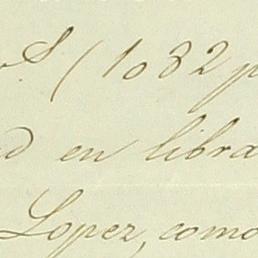 (1082 p
en libra
Lopez, como